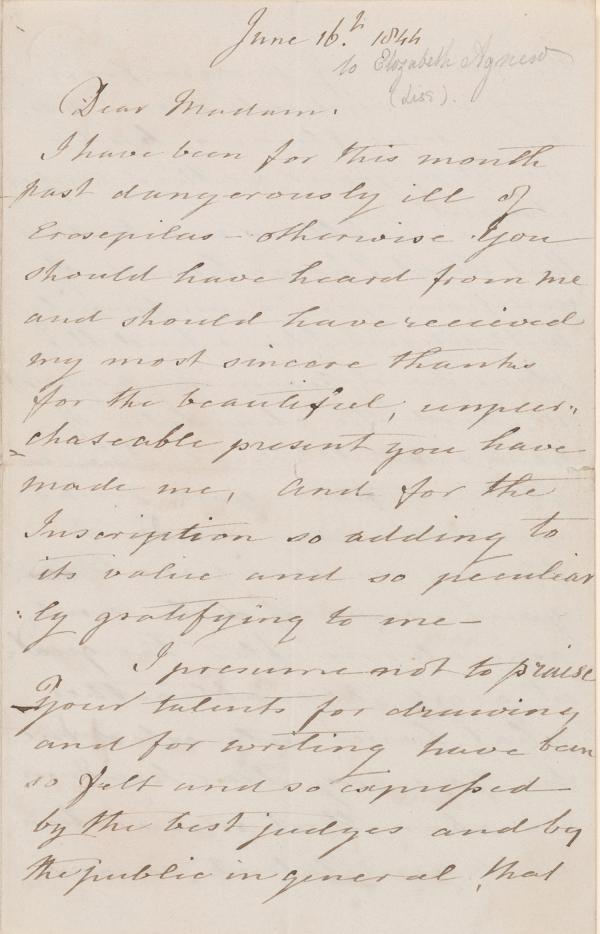 June 16.th 1844
to Elizabeth Agnew
Dear Madam.
I have been for this month
past dangerously ill of
Erosepilas - otherwise You
should have heard from me
and should have received
my most sincere thanks
for the beautiful, unpur-
chaseable present you have
made me, and for the
Inscription so adding to
its value and so peculiar
ly gratifying to me -
I presume not to praise
Your talents for drawing
and for writing have been
so felt and so expressed
by the best judges and by
the public in general, that